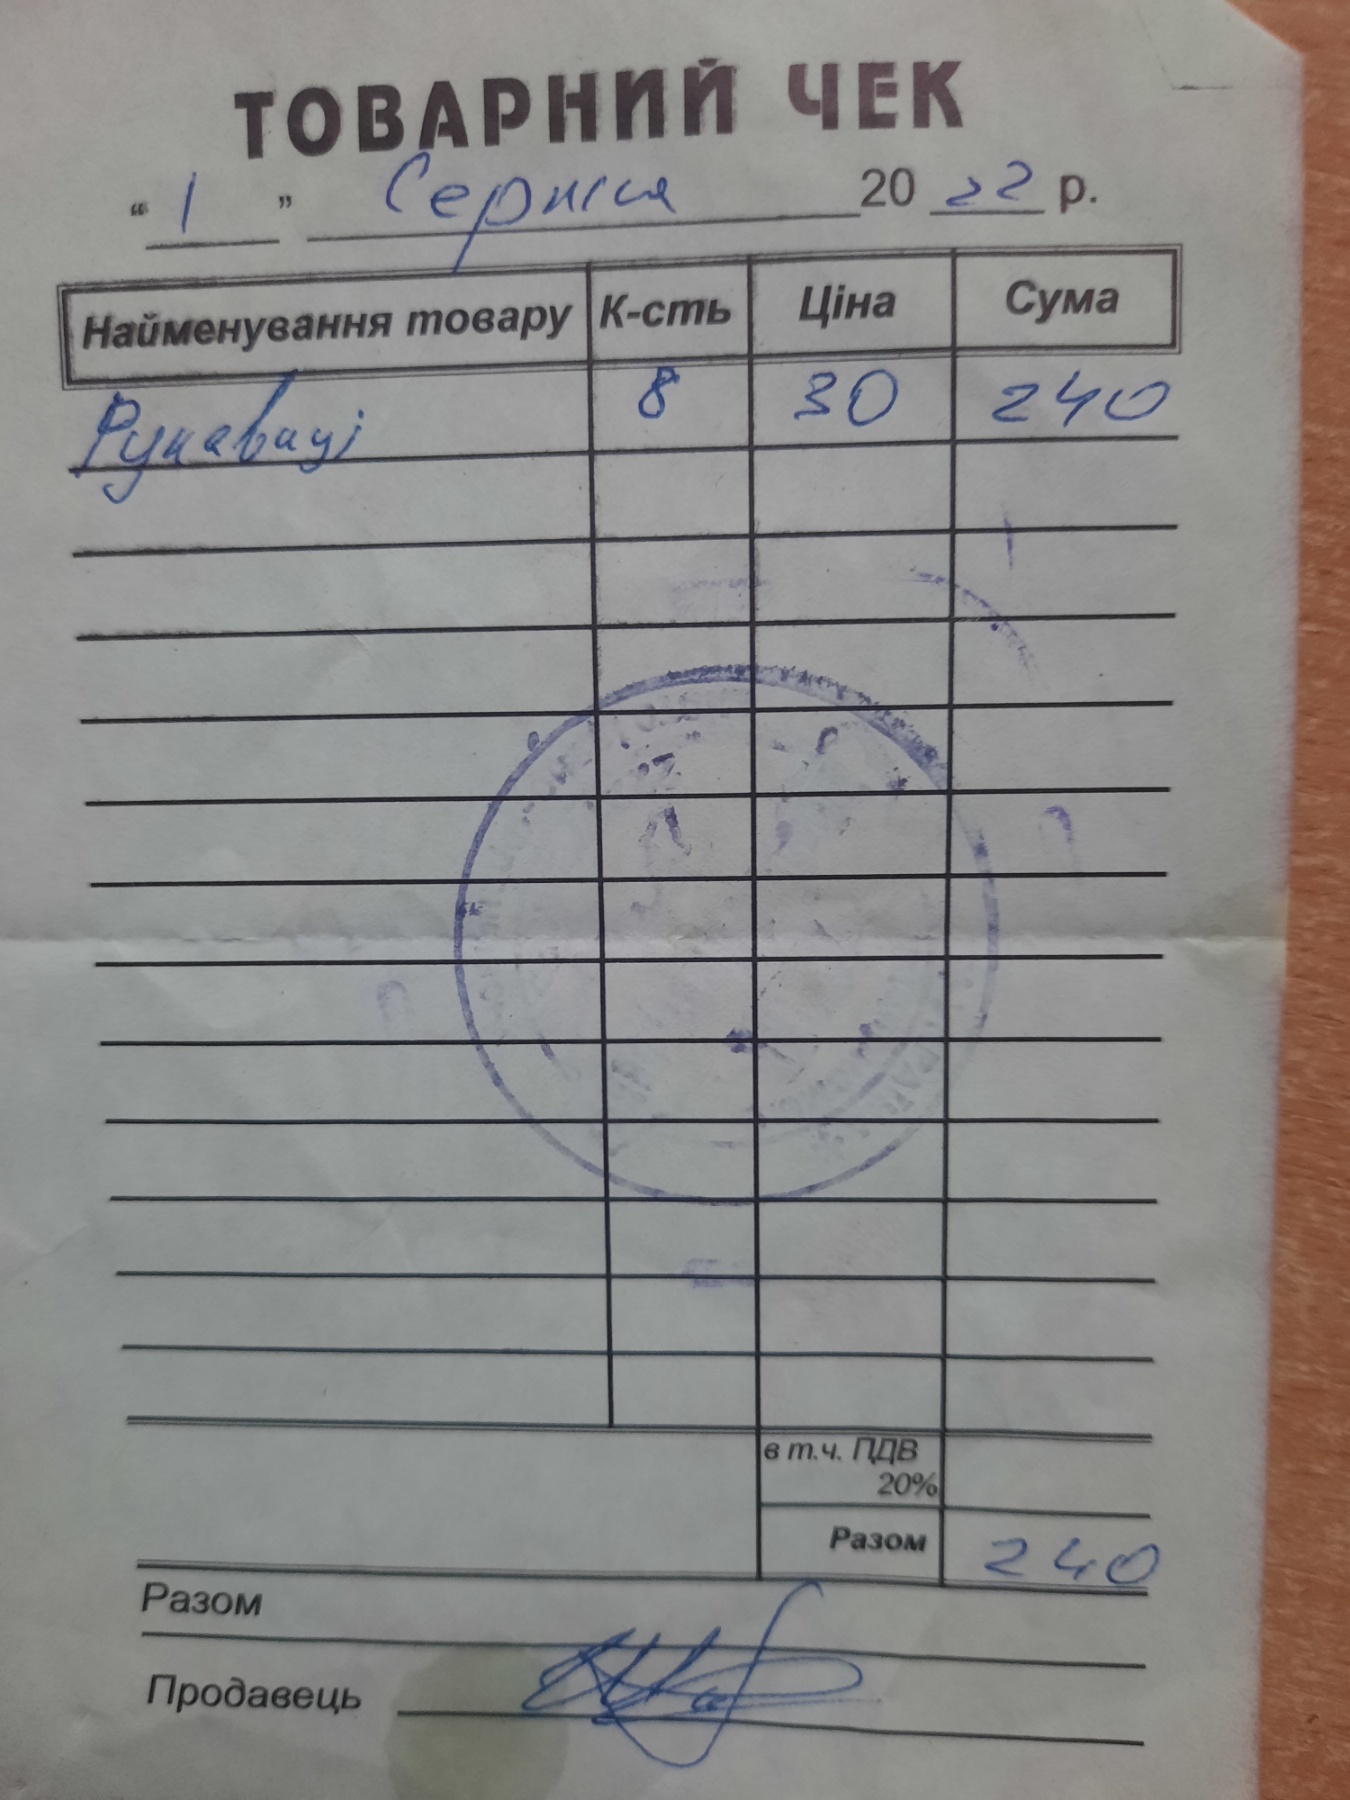 ТОВАРНИЙ ЧЕК
“ 1 ” Серпня 20 22 р.
Найменування товару К-сть Ціна Сума
Рукавиці 8 30 240
в т.ч. ПДВ
20%
Разом 240
Разом
Продавець